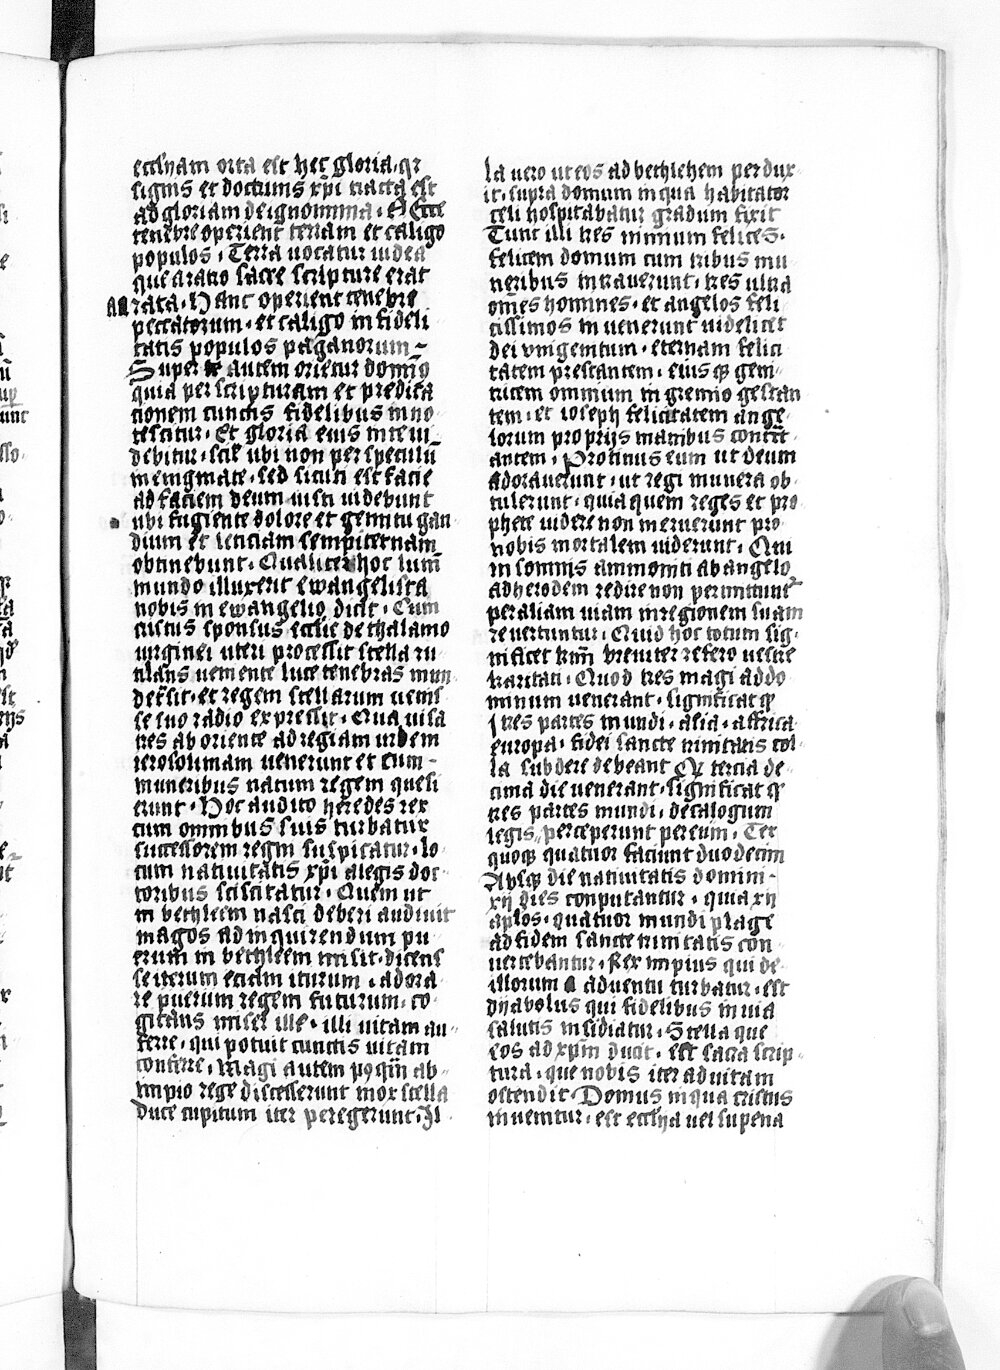 ecclesiam orta est hec gloria. qr
signis et doctrinis xpi tracta est
ad gloriam de ignominia. Ecce
tenebre operient terram et caligo
populos. Terra vocatur iudea
que aratro sacre scripture erat
arata. Hanc operient tenebre
peccatorum. et caligo in fideli
tatis populos paganorum
Super te autem orietur dominus
quia per scripturam et predica
tionem cunctis fidelibus inno
tescitur. Et gloria eius in te vi
debitur. scil' ubi non per speculū
in enigmate. sed sicuti est facie
ad faciem deum iusti videbunt
ubi fugiente dolore et gemitu gau
dium et leticiam sempiternam
obtinebunt. Qualiter hoc lumē
mundo illuxerit ewangelista
nobis in ewangelio dicit. Cum
cristus sponsus ecclie de thalamo
virginei uteri processit stella ru
tilans veniente luce tenebras mun
deesit. et regem stellarum venis
se suo radio expressit. Qua visa
tres ab oriente ad regiam urbem
ierosolimam venerunt et cum
muneribus natum regem quesi
erunt. Hoc audito herodes rex
cum omnibus suis turbatur
successorem regni suspicatur. lo
cum nativitatis xpi a legis doc
toribus sciscitatur. Quem ut
in bethleem nasci deberi audivit
magos ad inquirendum pu
erum in bethleem misit. dicens
se iterum etiam iturum. adora
re puerum regem futurum. co
gitans miser ille. illi vitam au
ferre. qui potuit cunctis vitam
conferre. Magi autem poqm ab
impio rege discesserunt mox stella
duce cupitum iter peregerunt. Il
la vero ut eos ad bethlehem perdux
it. supra domum in qua habitator
celi hospitabatur gradum fixit
Tunc illi tres nimium felices.
felicem domum cum tribus mu
neribus intraverunt. tres ultra
omēs homines. et angelos feli
cissimos invenerunt videlicet
dei vnigenitum. eternam felici
tatem prestantem. eiusq genit
tricem omnium in gremio gestan
tem. et ioseph felicitatem ange
lorum proprijs manibus contret
antem. Protinus eum ut deum
adoraverunt. ut regi munera ob
tulerunt. quia quem reges et pro
phete videre non meruerunt pro
nobis mortalem viderunt. Qui
in somnis ammoniti ab angelo
ad herodem redire non permittunt
per aliam viam in regionem suam
revertuntur. Quid hoc totum sig
nificet breviter refero vestre
karitati. Quod tres magi ad do
minum venerant. significat q
tres partes mundi. asia. affrica
europa. fidei sancte trinitatis col
la subdere debeant Q tercia de
cima die venerant. significat q
tres partes mundi. decalogum
legis perceperunt per eum. Ter
quoq quatuor faciunt duodecim
Absq die nativitatis domini
xij dies computantur. quia xij
aplos. quatuor mundi plage
ad fidem sancte trinitatis con
vertebantur. Rex impius qui de
illorum adventu turbatur. est
dyabolus qui fidelibus in via
salutis insidiatur. Stella que
eos ad xpm ducit. est sacra scrip
tura. que nobis iter ad vitam
ostendit. Domus in qua cristus
invenitur. est ecclesia vel superna